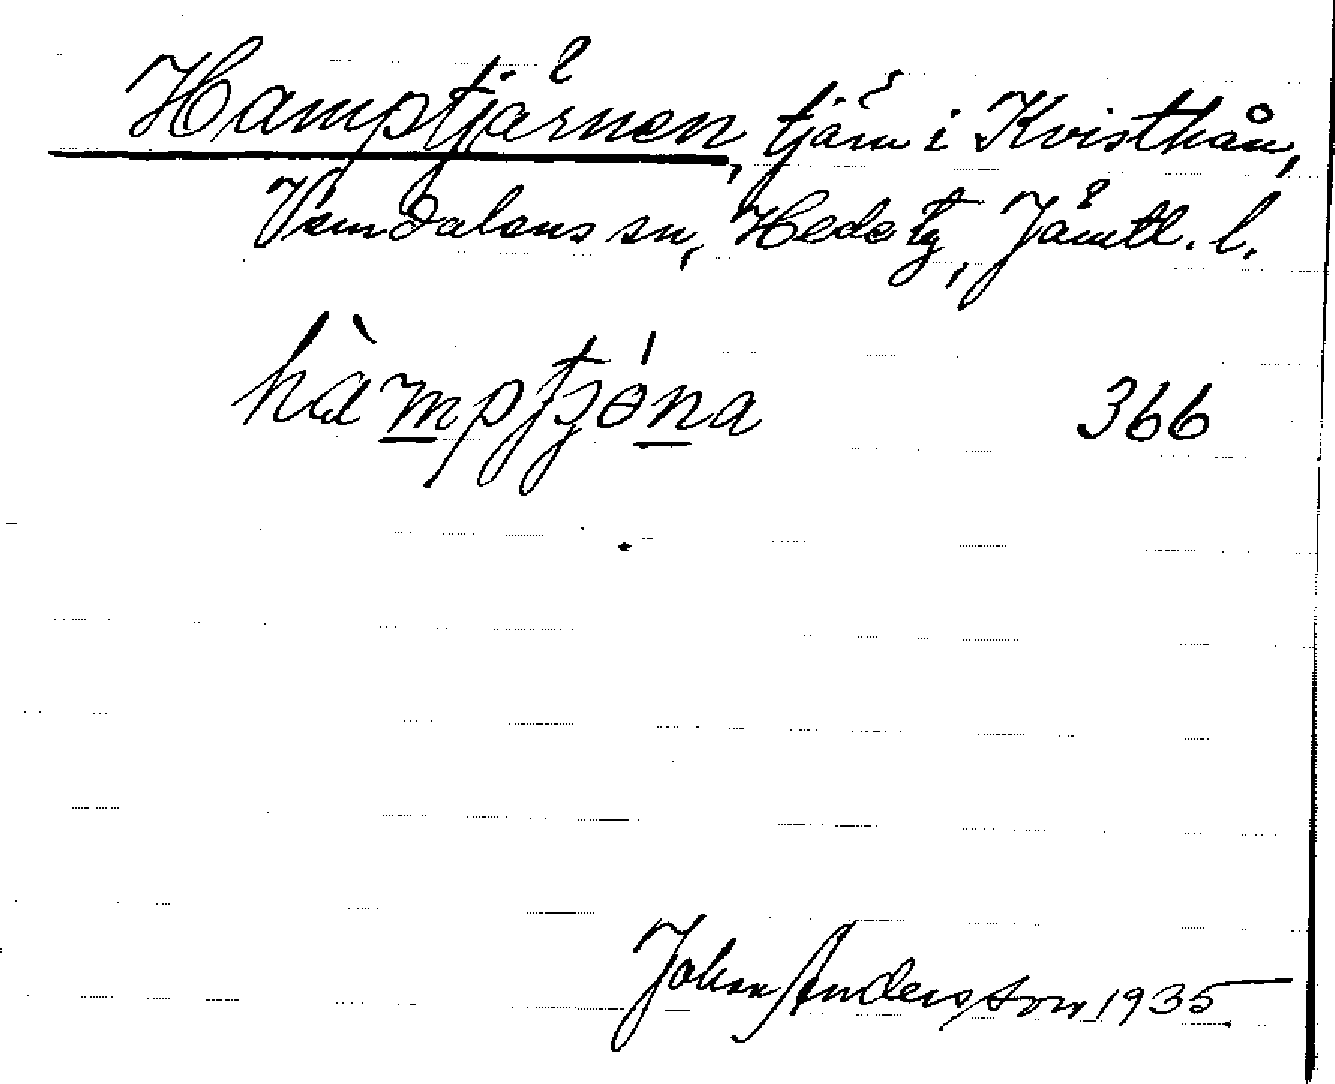 Hamptjärnen, tjärn i Kvisthån,
Vemdalens sn, Hede tg, Jämtl. l.
hàmptjǿna 366
Johan Andersson 1935